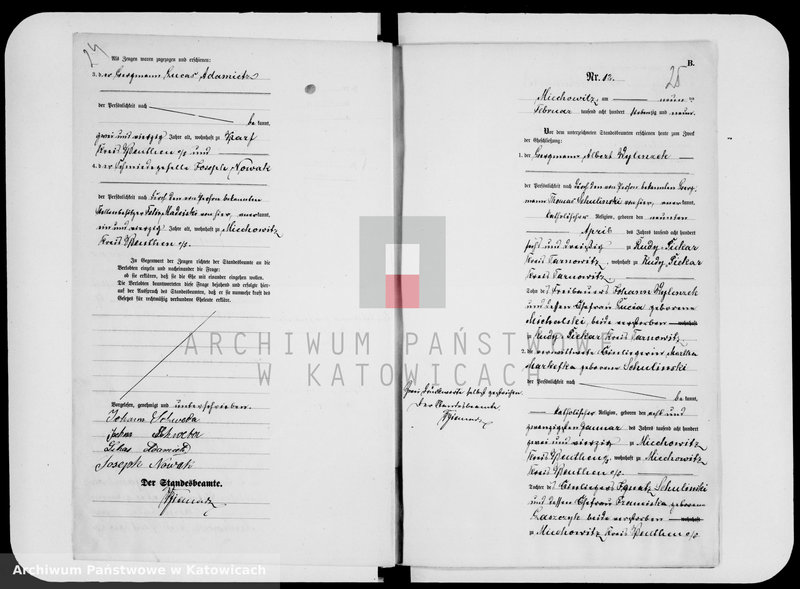 24
Als Zeugen waren zugezogen und erschienen:
3. der Bergmann Lucas Adamietz
der Persönlichkeit nach
be kannt,
zwei und vierzig Jahre alt, wohnhaft zu Karf
Kreis Beuthen o/s und
4. der Schmiedegeselle Joseph Nowak
der Persönlichkeit nach durch den von Person bekannten
Stellenbesitzer Felix Madejski von hier, aner kannt,
ein und vierzig Jahre alt, wohnhaft zu Miechowitz
Kreis Beuthen o/s.
In Gegenwart der Zeugen richtete der Standesbeamte an die
Verlobten einzeln und nacheinander die Frage:
ob sie erklären, daß sie die Ehe mit einander eingehen wollen.
Die Verlobten beantworteten diese Frage bejahend und erfolgte hier-
auf der Ausspruch des Standesbeamten, daß er sie nunmehr kraft des
Gesetzes für rechtmäßig verbundene Eheleute erkläre.
Vorgelesen, genehmigt und unterschrieben.
Johann
Lukas
Joseph Nowak
Der Standesbeamte.
B.
25
Nr. 12.
Miechowitz am neun ten
Februar tausend acht hundert siebenzig und neun.
Vor dem unterzeichneten Standesbeamten erschienen heute zum Zweck
der Eheschließung:
1. der Bergmann Albert Kylenzek
der Persönlichkeit nach durch den von Person bekannten Berg-
mann Thomas Schulinski von hier, aner kannt,
katholischer Religion, geboren den neunten
April des Jahres tausend acht hundert
sechs und dreißig zu Rudy-Piekar
Kreis Tarnowitz, wohnhaft zu Rudy-Piekar
Kreis Tarnowitz,
Sohn des Freibauers Johann Kylenzek
und dessen Ehefrau Lucia geborene
Michalski, beide verstorben wohnhaft
zu Rudy-Piekar Kreis Tarnowitz.
2. die verwittwete Einliegerin Martha
Markefka geborene Schulinski
der Persönlichkeit nach
be kannt,
katholischer Religion, geboren den sechs und
zwanzigsten Januar des Jahres tausend acht hundert
zwei und vierzig zu Miechowitz
Kreis Beuthen o/s, wohnhaft zu Miechowitz
Kreis Beuthen o/s.
Tochter des Einliegers Ignatz Schulinski
und dessen Ehefrau Franciska geborene
beide verstorben wohnhaft
zu Miechowitz Kreis Beuthen o/s.
Zwei Druckworte selbst gestrichen.
Der Standesbeamte.
ARCHIWUM PAŃSTWOWE
W KATOWICACH
Archiwum Państwowe w Katowicach